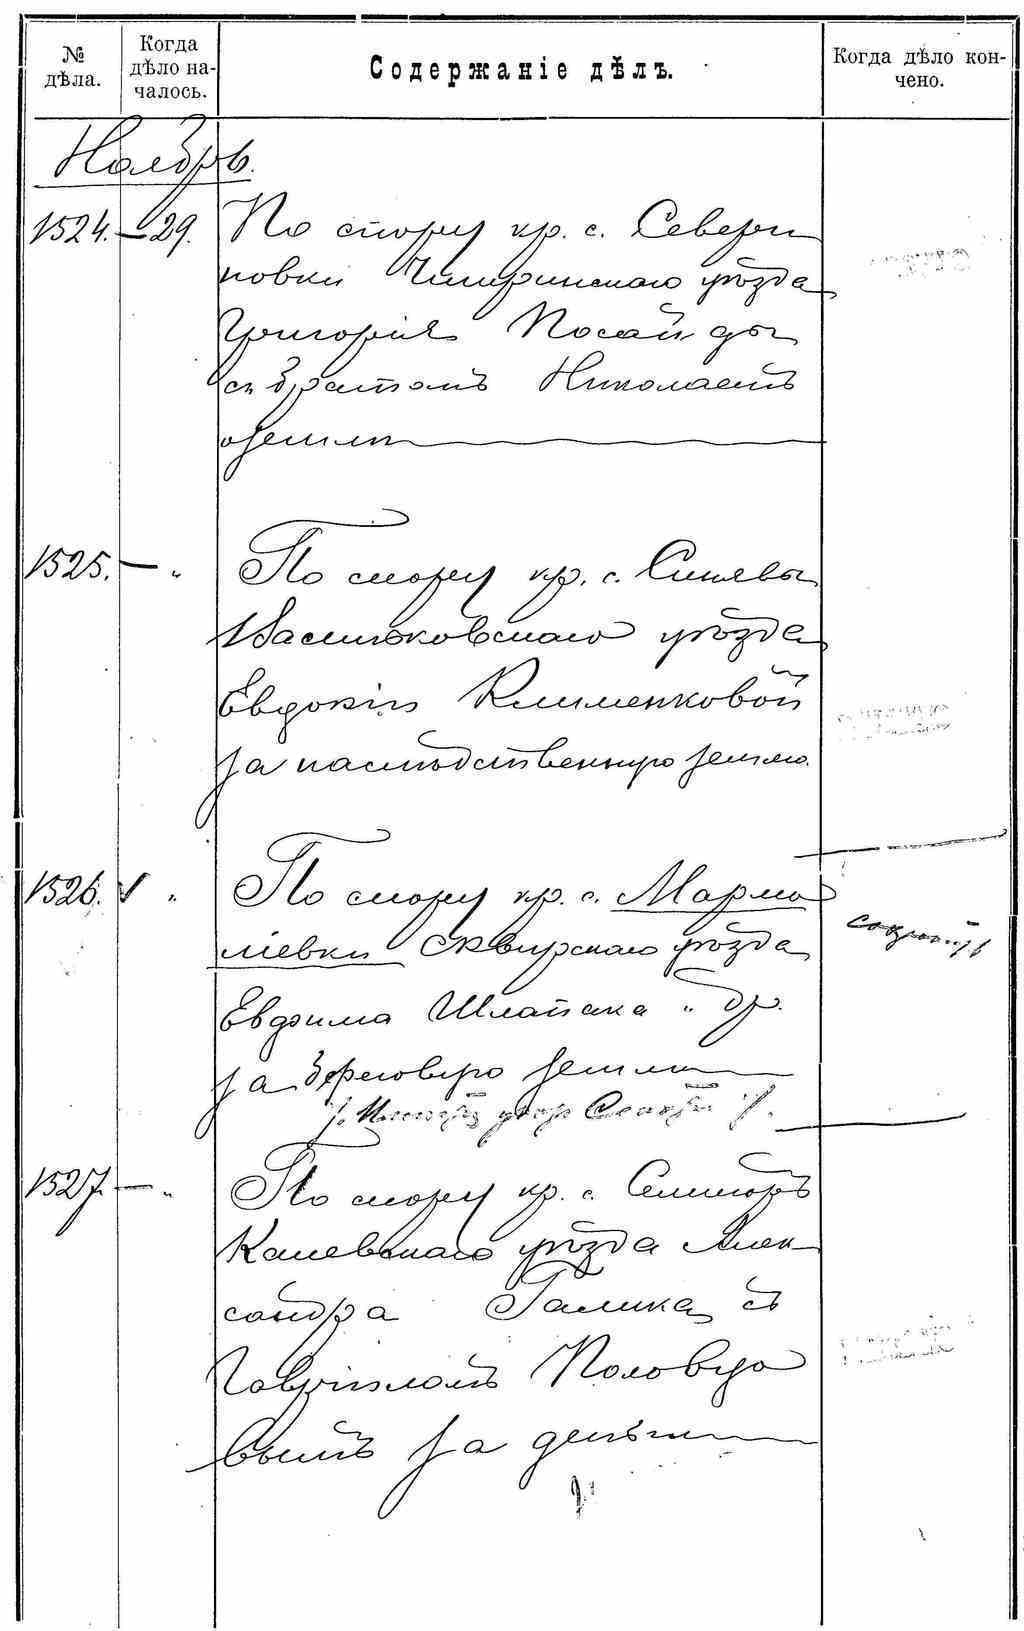 № дѣла.
Когда дѣло на-
чалось.
Содержаніе дѣлъ.
Когда дѣло кон-
чено.
Ноябрь.
1524. — 29. По спору кр. с. Севери
новки Чигиринскаго уѣзда
Григорія Посайды
съ братомъ Николаемъ
о земли
1525. — „ По спору кр. с. Синявы
Васильковскаго уѣзда
Евдокіи Клименковой
за наслѣдственную землю.
1526. „ По спору кр. с. Мармо
ліевки Сквирскаго уѣзда
Евфима Шлапака и др.
за береговую земли
1527. — „ По спору кр. с.
Каневскаго уѣзда Алек
сандра Галика съ
Гавріиломъ Половцо
вымъ за деньги